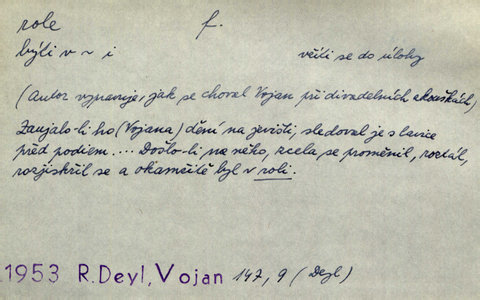 role f.
býti v ~ i vžíti se do úlohy
(Autor vypravuje, jak se choval Vojan při divadelních zkouškách)
Zaujalo-li ho (Vojana) dění na jevišti, sledoval je s lavice
před podiem. ... Došlo-li na něho, zcela se proměnil, roztál,
rozjiskřil se a okamžitě byl v roli.
1953 R. Deyl, Vojan 147, 9 (Deyl)